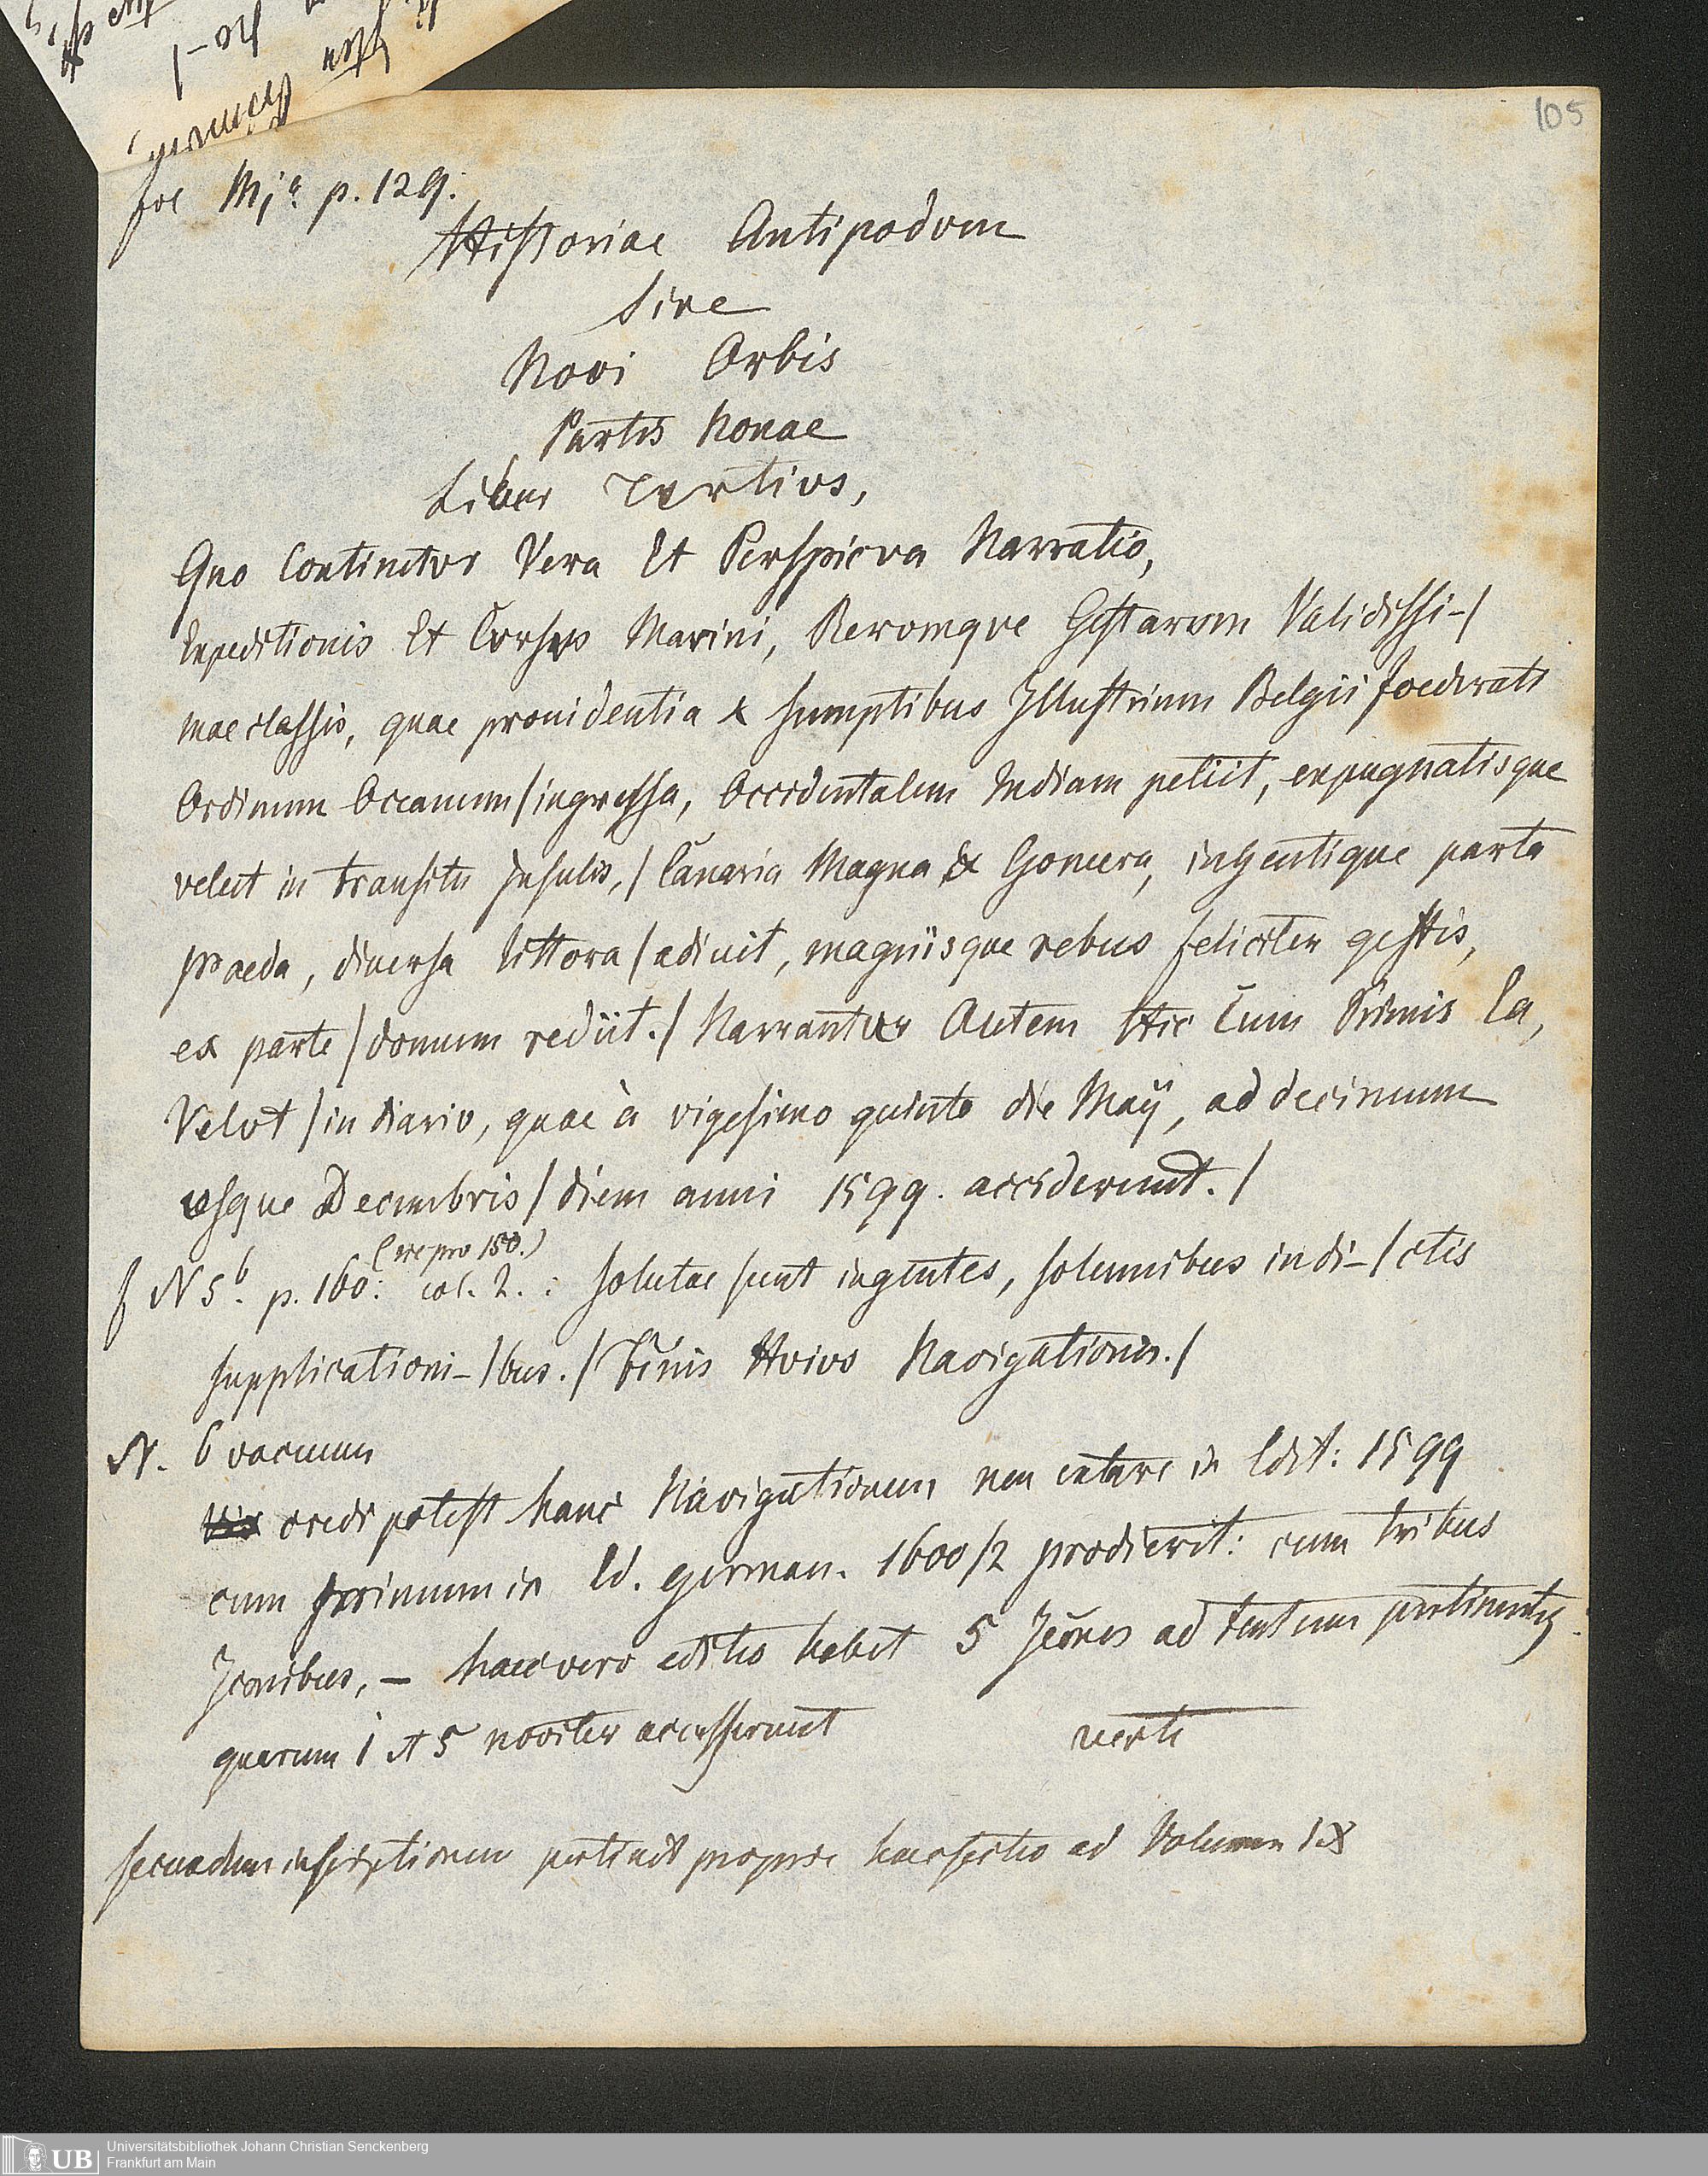 105
fol M1a p. 129:
Historiae Antipodvm
sive
Novi Orbis
Partis Nonae
Liber Tertivs,
Quo Continetvr Vera Et Perspicva Narratio,
Expeditionis Et Cvrsvs Marini, Rervmqve Gestarvm Validissi-/
mae classis, quae prouidentia & sumptibus Illustrium Belgii foederati
Ordinum Oceanum/ingressa, Occidentalem Indiam petiit, expugnatisque
velut in transitu Insulis,/Canaria Magna & Gomera, ingentique parta
praeda, diuersa littora/adiuit, magniisque rebus feliciter gestis,
ex parte/domum rediit./Narrantur Autem Hic Cum Primis Ea,
Velvt/in diario, quae à vigesimo quinto die Maÿ, ad decimum
usque Decembris/diem anni 1599. acciderunt./
(sic pro 150.)
f N5b. p. 160: col. 2.: solutae sunt ingentes, solennibus indi-/ctis
supplicationi-/bus./Finis Hvivs Navigationis./
N. 6 vacuum
credi potest hanc Navigationem non extare in Edit: 1599
cum primum in Ed. german. 1600/2 prodierit: cum tribus
Iconibus, – haec vero editio habet 5 Icones ad textum pertinentes
quarum 1 et 5 noviter accesserunt
verti
secundum inscriptionem pertinet proprie haec sectio ad Volumen IX
UB
Universitätsbibliothek Johann Christian Senckenberg
Frankfurt am Main